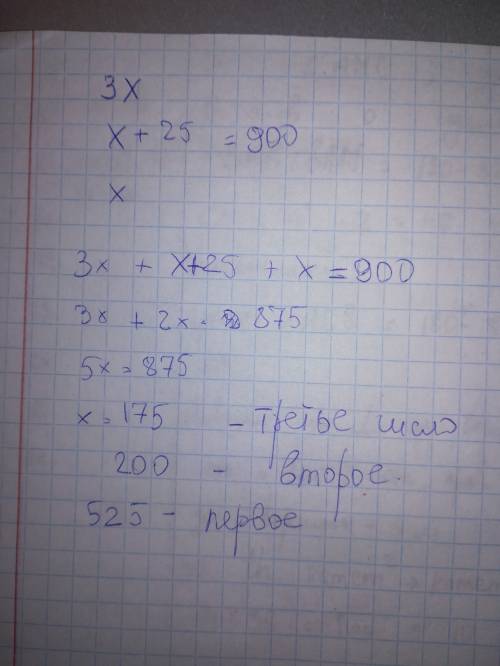 3x
x + 25 = 900
x
3x + x+25 + x = 900
3x + 2x = 875
5x = 875
x = 175 - третье число
200 - второе.
525 - первое